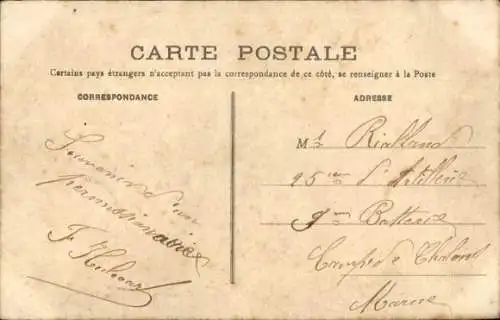 CARTE POSTALE
Certains pays étrangers n'acceptant pas la correspondance de ce côté, se renseigner à la Poste
CORRESPONDANCE
Souvenir d'un
permissionnaire
F.
ADRESSE
Mr Rialland
25ième d'Artillerie
9me Batterie
Camp de Chalons
Marne